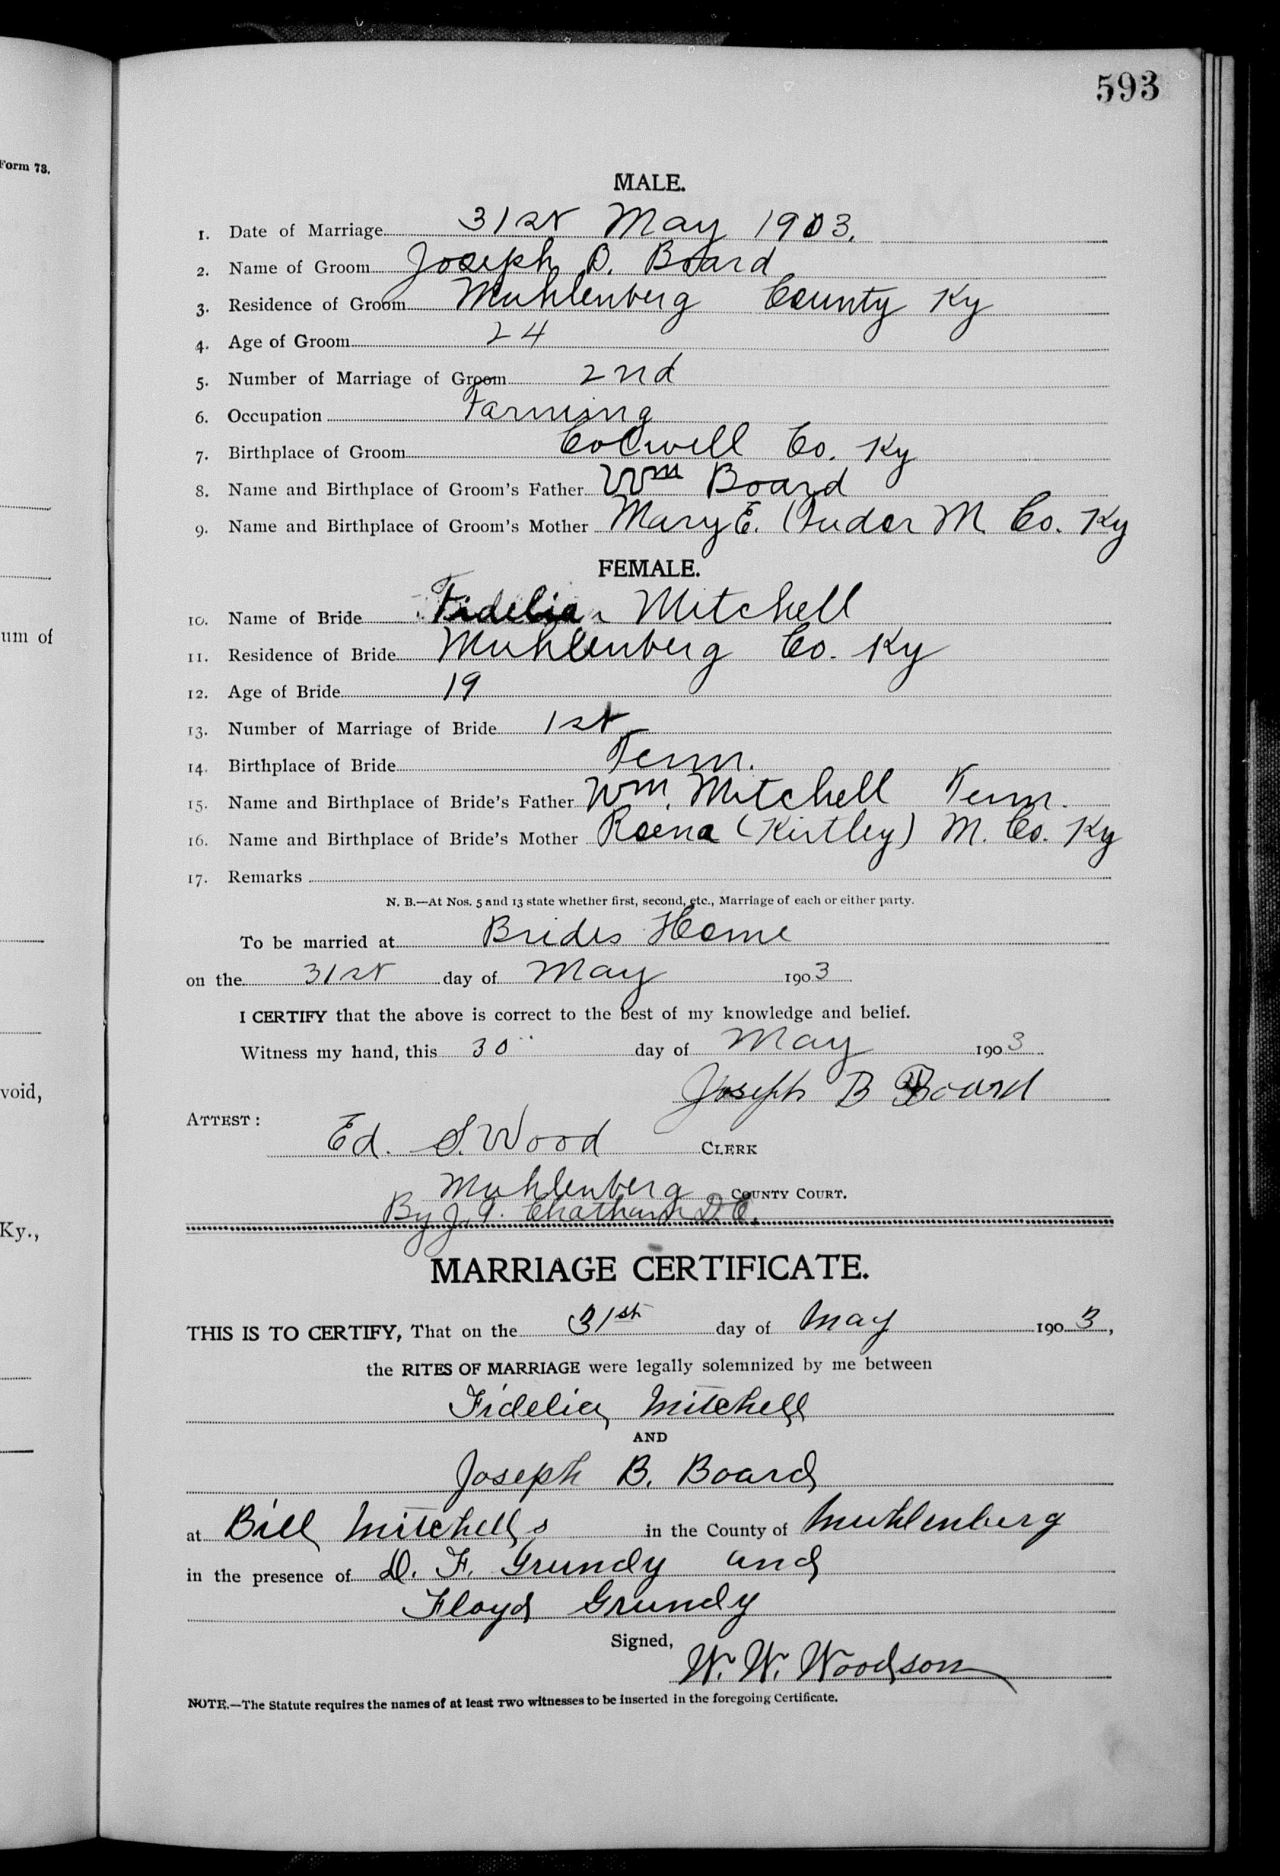 593
Form 73.
MALE.
1. Date of Marriage 31st May 1903.
2. Name of Groom Joseph B. Board
3. Residence of Groom Muhlenberg County Ky
4. Age of Groom 24
5. Number of Marriage of Groom 2nd
6. Occupation Farming
7. Birthplace of Groom Colwell Co. Ky
8. Name and Birthplace of Groom's Father Wm Board
9. Name and Birthplace of Groom's Mother Mary E. M. Co. Ky
FEMALE.
10. Name of Bride Fidelia Mitchell
um of
11. Residence of Bride Muhlenberg Co. Ky
12. Age of Bride 19
13. Number of Marriage of Bride 1st
14. Birthplace of Bride Tenn.
15. Name and Birthplace of Bride's Father Wm. Mitchell Tenn.
16. Name and Birthplace of Bride's Mother Roena (Kirtley) M. Co. Ky
17. Remarks
N. B.—At Nos. 5 and 13 state whether first, second, etc., Marriage of each or either party.
To be married at Brides Home
on the 31st day of May 1903
I CERTIFY that the above is correct to the best of my knowledge and belief.
Witness my hand, this 30" day of May 1903
void,
Joseph B Board
ATTEST:
Ed. S. Wood CLERK
Muhlenberg COUNTY COURT.
By J. A. Chatham D.C.
Ky.,
MARRIAGE CERTIFICATE.
THIS IS TO CERTIFY, That on the 31st day of May 1903,
the RITES OF MARRIAGE were legally solemnized by me between
Fidelia Mitchell
AND
Joseph B. Board
at Bill Mitchells in the County of Muhlenberg
in the presence of D. F. Grundy and
Floyd Grundy
Signed,
W. W. Woodson
NOTE.—The Statute requires the names of at least TWO witnesses to be inserted in the foregoing Certificate.